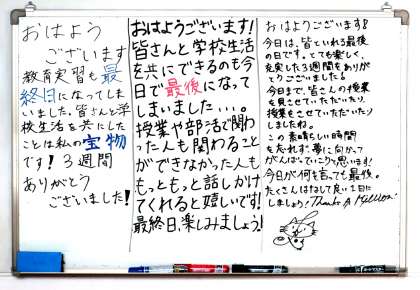 おはよう
ございます
教育実習も最
終日になってしま
いました。皆さんと学
校生活を共にした
ことは私の宝物
です！3週間
ありがとう
ございました！
おはようございます！
皆さんと学校生活
を共にできるのも今
日で最後になって
しまいました...。
授業や部活で関わ
った人も関わること
ができなかった人も
もっともっと話しかけ
てくれると嬉しいです！
最終日、楽しみましょう！
おはようございます！
今日は、皆といれる最後
の日です。とても楽しく、
充実した3週間をありが
とうございました！
今日まで、皆さんの授業
を見させていただいたり、
授業をさせていただいたり
しましたね。
この素晴らしい時間
を忘れず、夢に向かって
がんばっていこうと思います！
今日が何を言っても最後。
たくさんはなして良い1日に
しましょう！Thanks A Million!